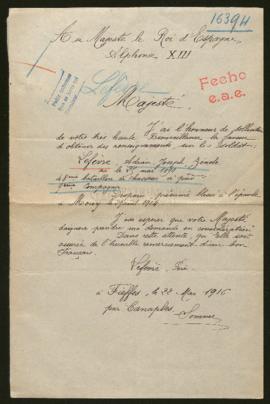 16394
A sa Majesté le Roi d'Espagne
Alphonse XIII
Lefèvre
Fecho
e.a.e.
Majesté
J'ai l'honneur de solliciter
de votre très haute Bienveillance la faveur
d'obtenir des renseignements sur le soldat
Lefèvre Adrien Joseph
né le 1891
bataillon de chasseurs à pied
Compagnie
Disparu présumé blessé à l'épaule
à 1914
J'ose espérer que votre Majesté
daignera prendre ma demande en considération
Dans cette attente, qu'Elle soit
assurée de l'humble remerciement d'un bon
Français.
Lefèvre Père
à Fieffes, le 22 Mai 1916
par Canaples
Somme